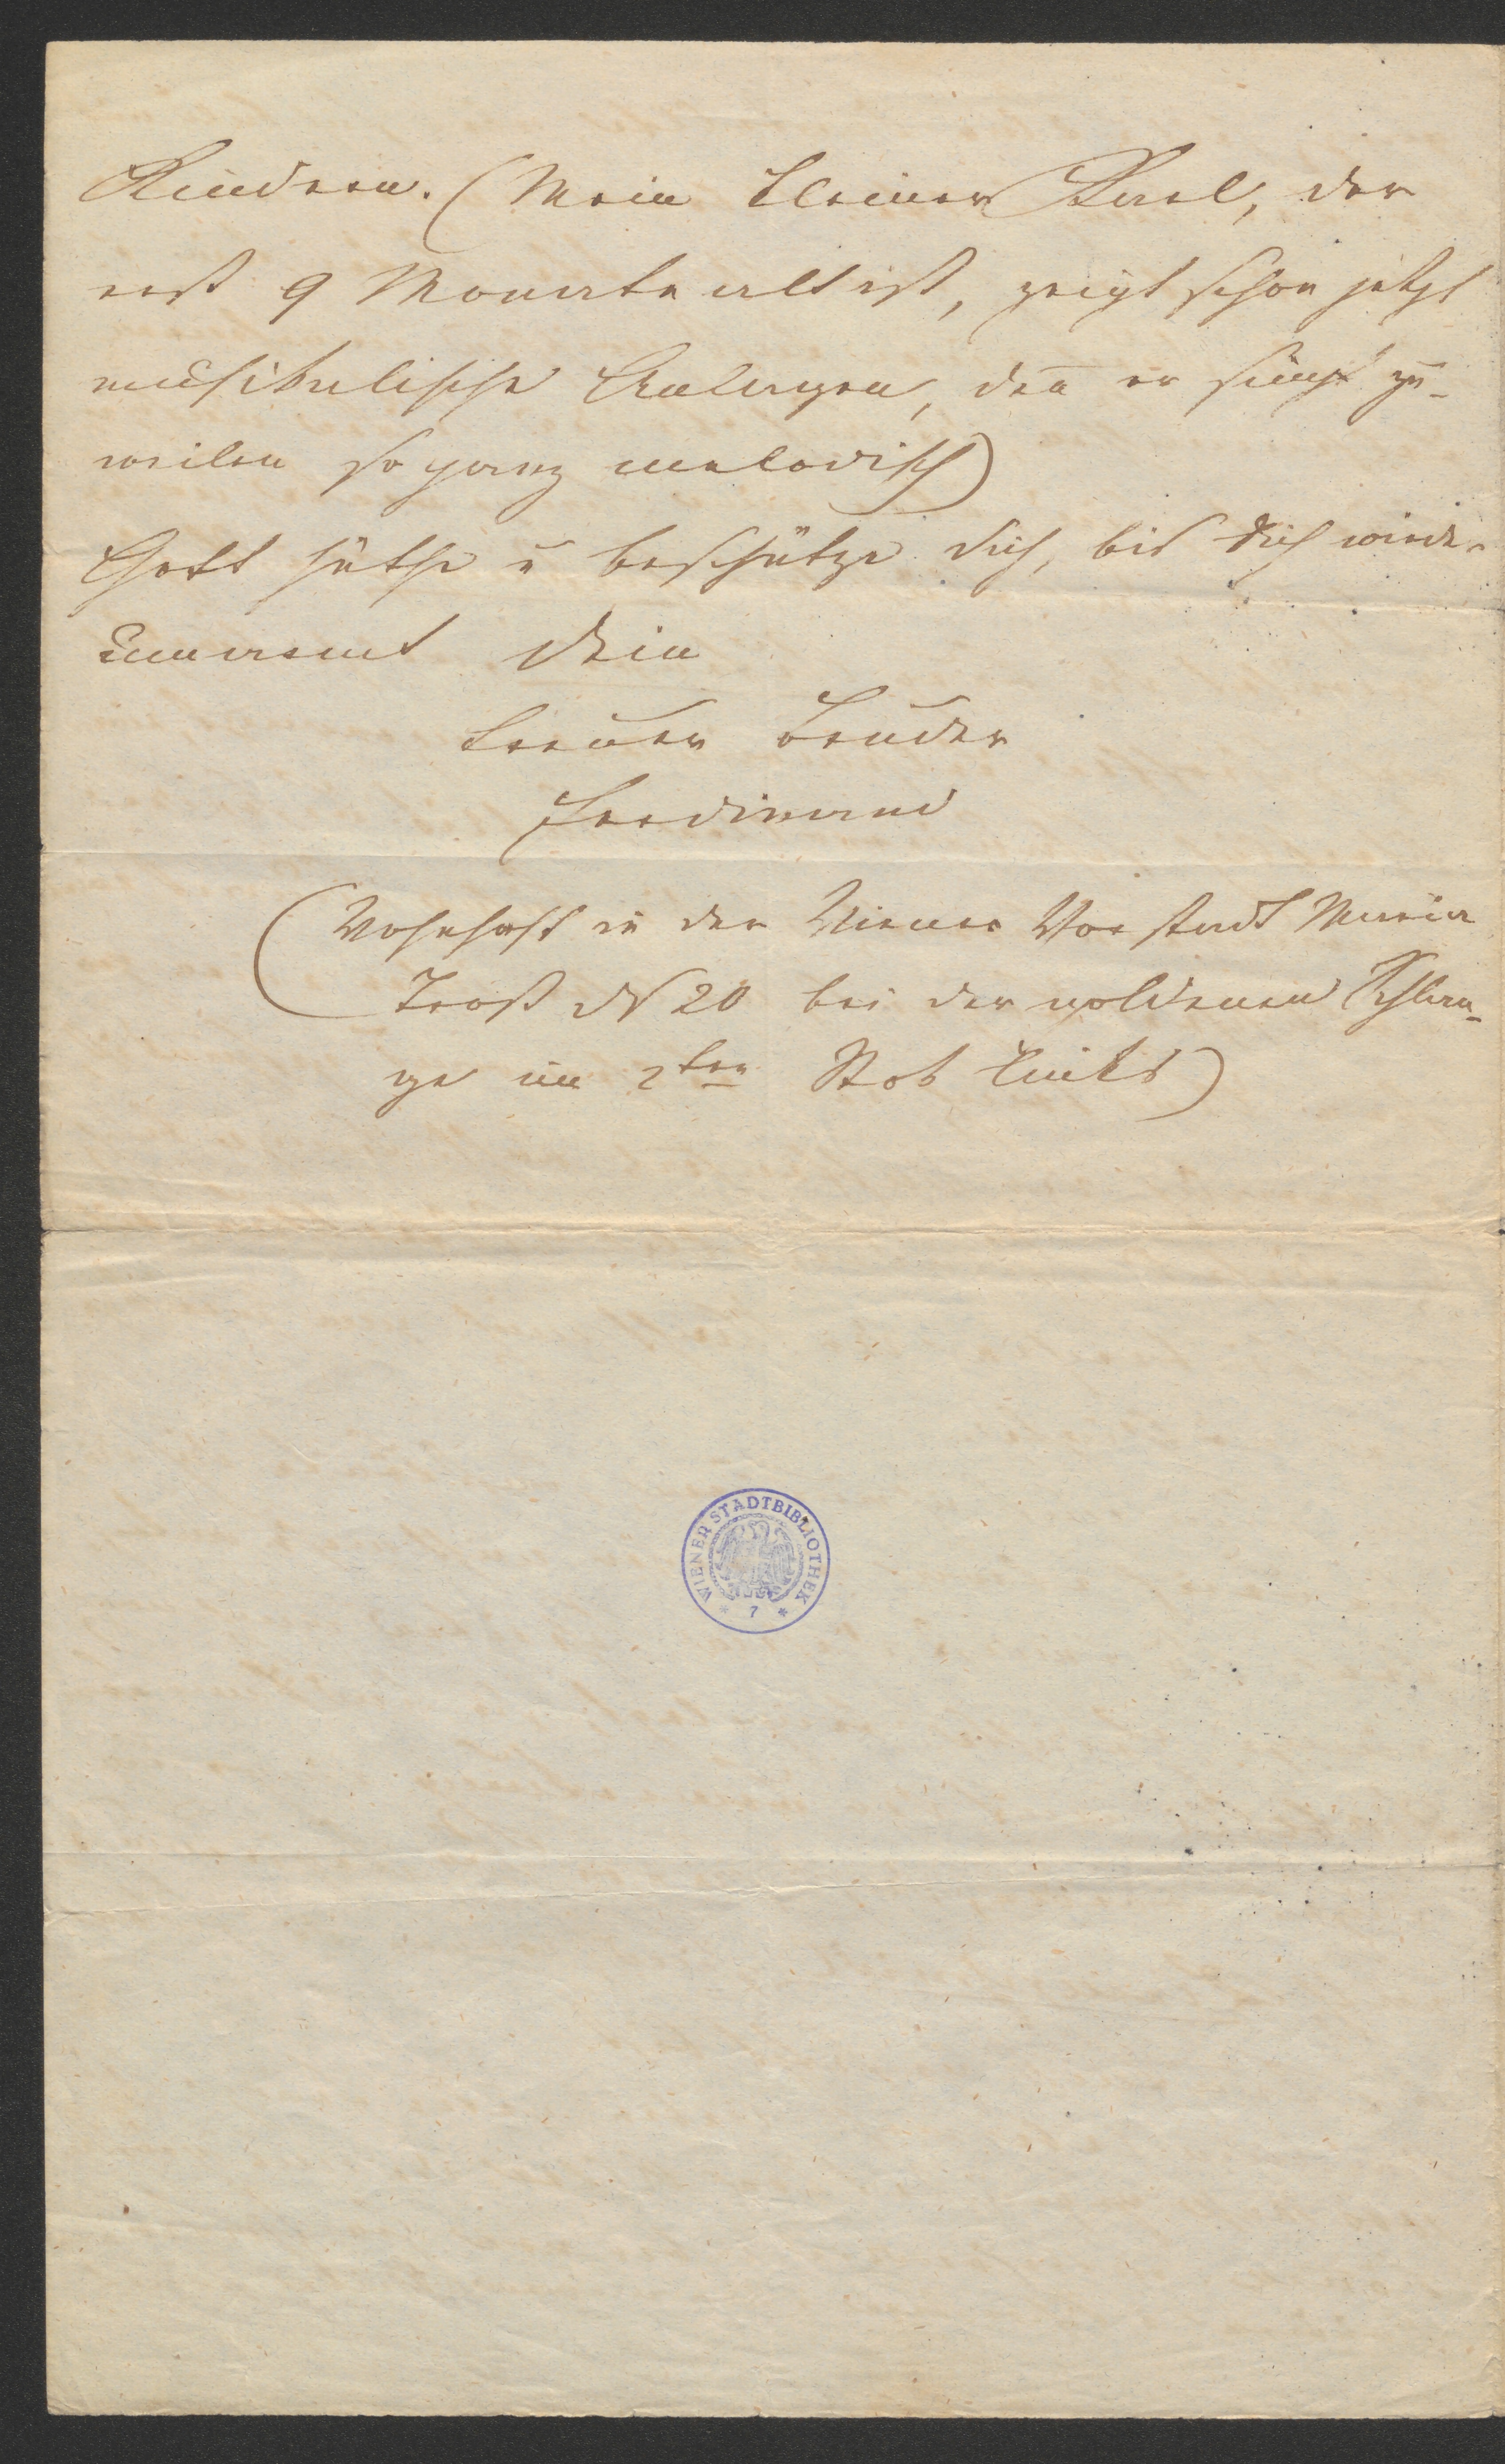 Kindern. (Mein kleiner Karl, der
erst 9 Monate alt ist, zeigt schon jetzt
musikalische Anlagen, den̄ er singt zu-
weilen so ganz melodisch)
Gott hüthe u beschütze dich, bis dich wieder
umarmt dein
treuer Bruder
Ferdinand
(Wohnhaft in der Wiener Vorstadt Maria
Trost N 20 bei der goldenen Schlan-
ge im 2ten Stok links)
WIENER STADTBIBLIOTHEK
* 7 *